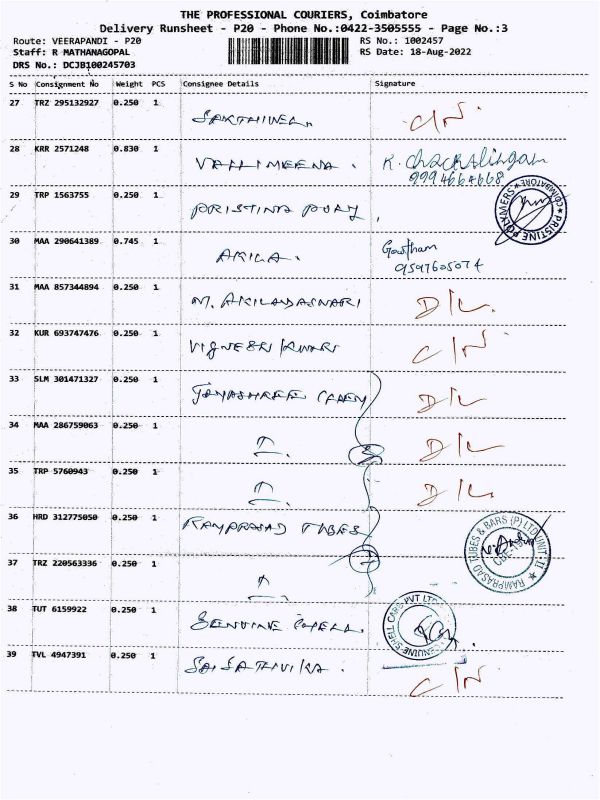 THE PROFESSIONAL COURIERS, Coimbatore
Delivery Runsheet - P20 - Phone No.:0422-3505555 - Page No.:3
Route: VEERAPANDI - P20 RS No.: 1002457
Staff: R MATHANAGOPAL RS Date: 18-Aug-2022
DRS No.: DCJB100245703
S No Consignment No Weight PCS Consignee Details Signature
27 TRZ 295132927 0.250 1 SAKTHIVEL. C/N
28 KRR 2571248 0.830 1 VALLIMEENA. K. Chockalingam
9994664668
29 TRP 1563755 0.250 1 PRISTINA POLY, PRISTINE POLYMERS ★ COIMBATORE ★
30 MAA 290641389 0.745 1 AKILA. Gowtham
9597605074
31 MAA 857344894 0.250 1 M. AKILANDASWARI D/L.
32 KUR 693747476 0.250 1 VIGNESRI KUMARI C/N
33 SLM 301471327 0.250 1 JEYASHREE D/L
34 MAA 286759063 0.250 1 D/L
35 TRP 5760943 0.250 1 D/L.
36 HRD 312775050 0.250 1 RAMPRASAD TUBES RAMPRASAD TUBES & BARS (P) LTD UNIT II ★
37 TRZ 220563336 0.250 1
38 TUT 6159922 0.250 1 GENUINE GENUINE SHELL CABS PVT LTD
39 TVL 4947391 0.250 1 SAI SATHVIKA. C/N